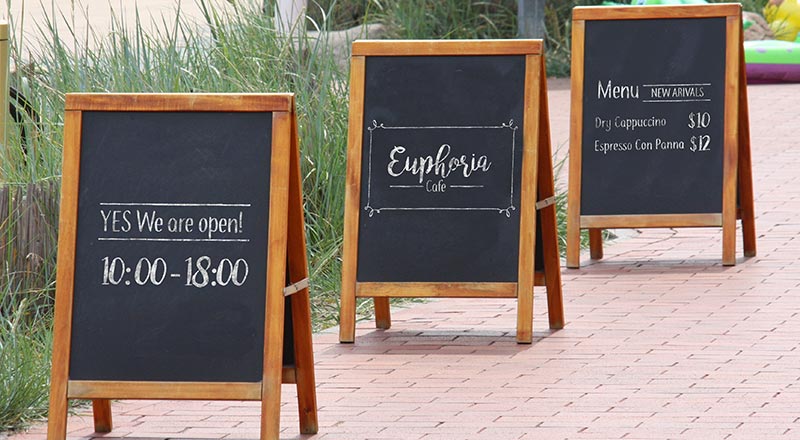 YES We are open!
10:00-18:00
Euphoria
Cafe
Menu NEW ARIVALS
Dry Cappuccino $10
Espresso Con Panna $12